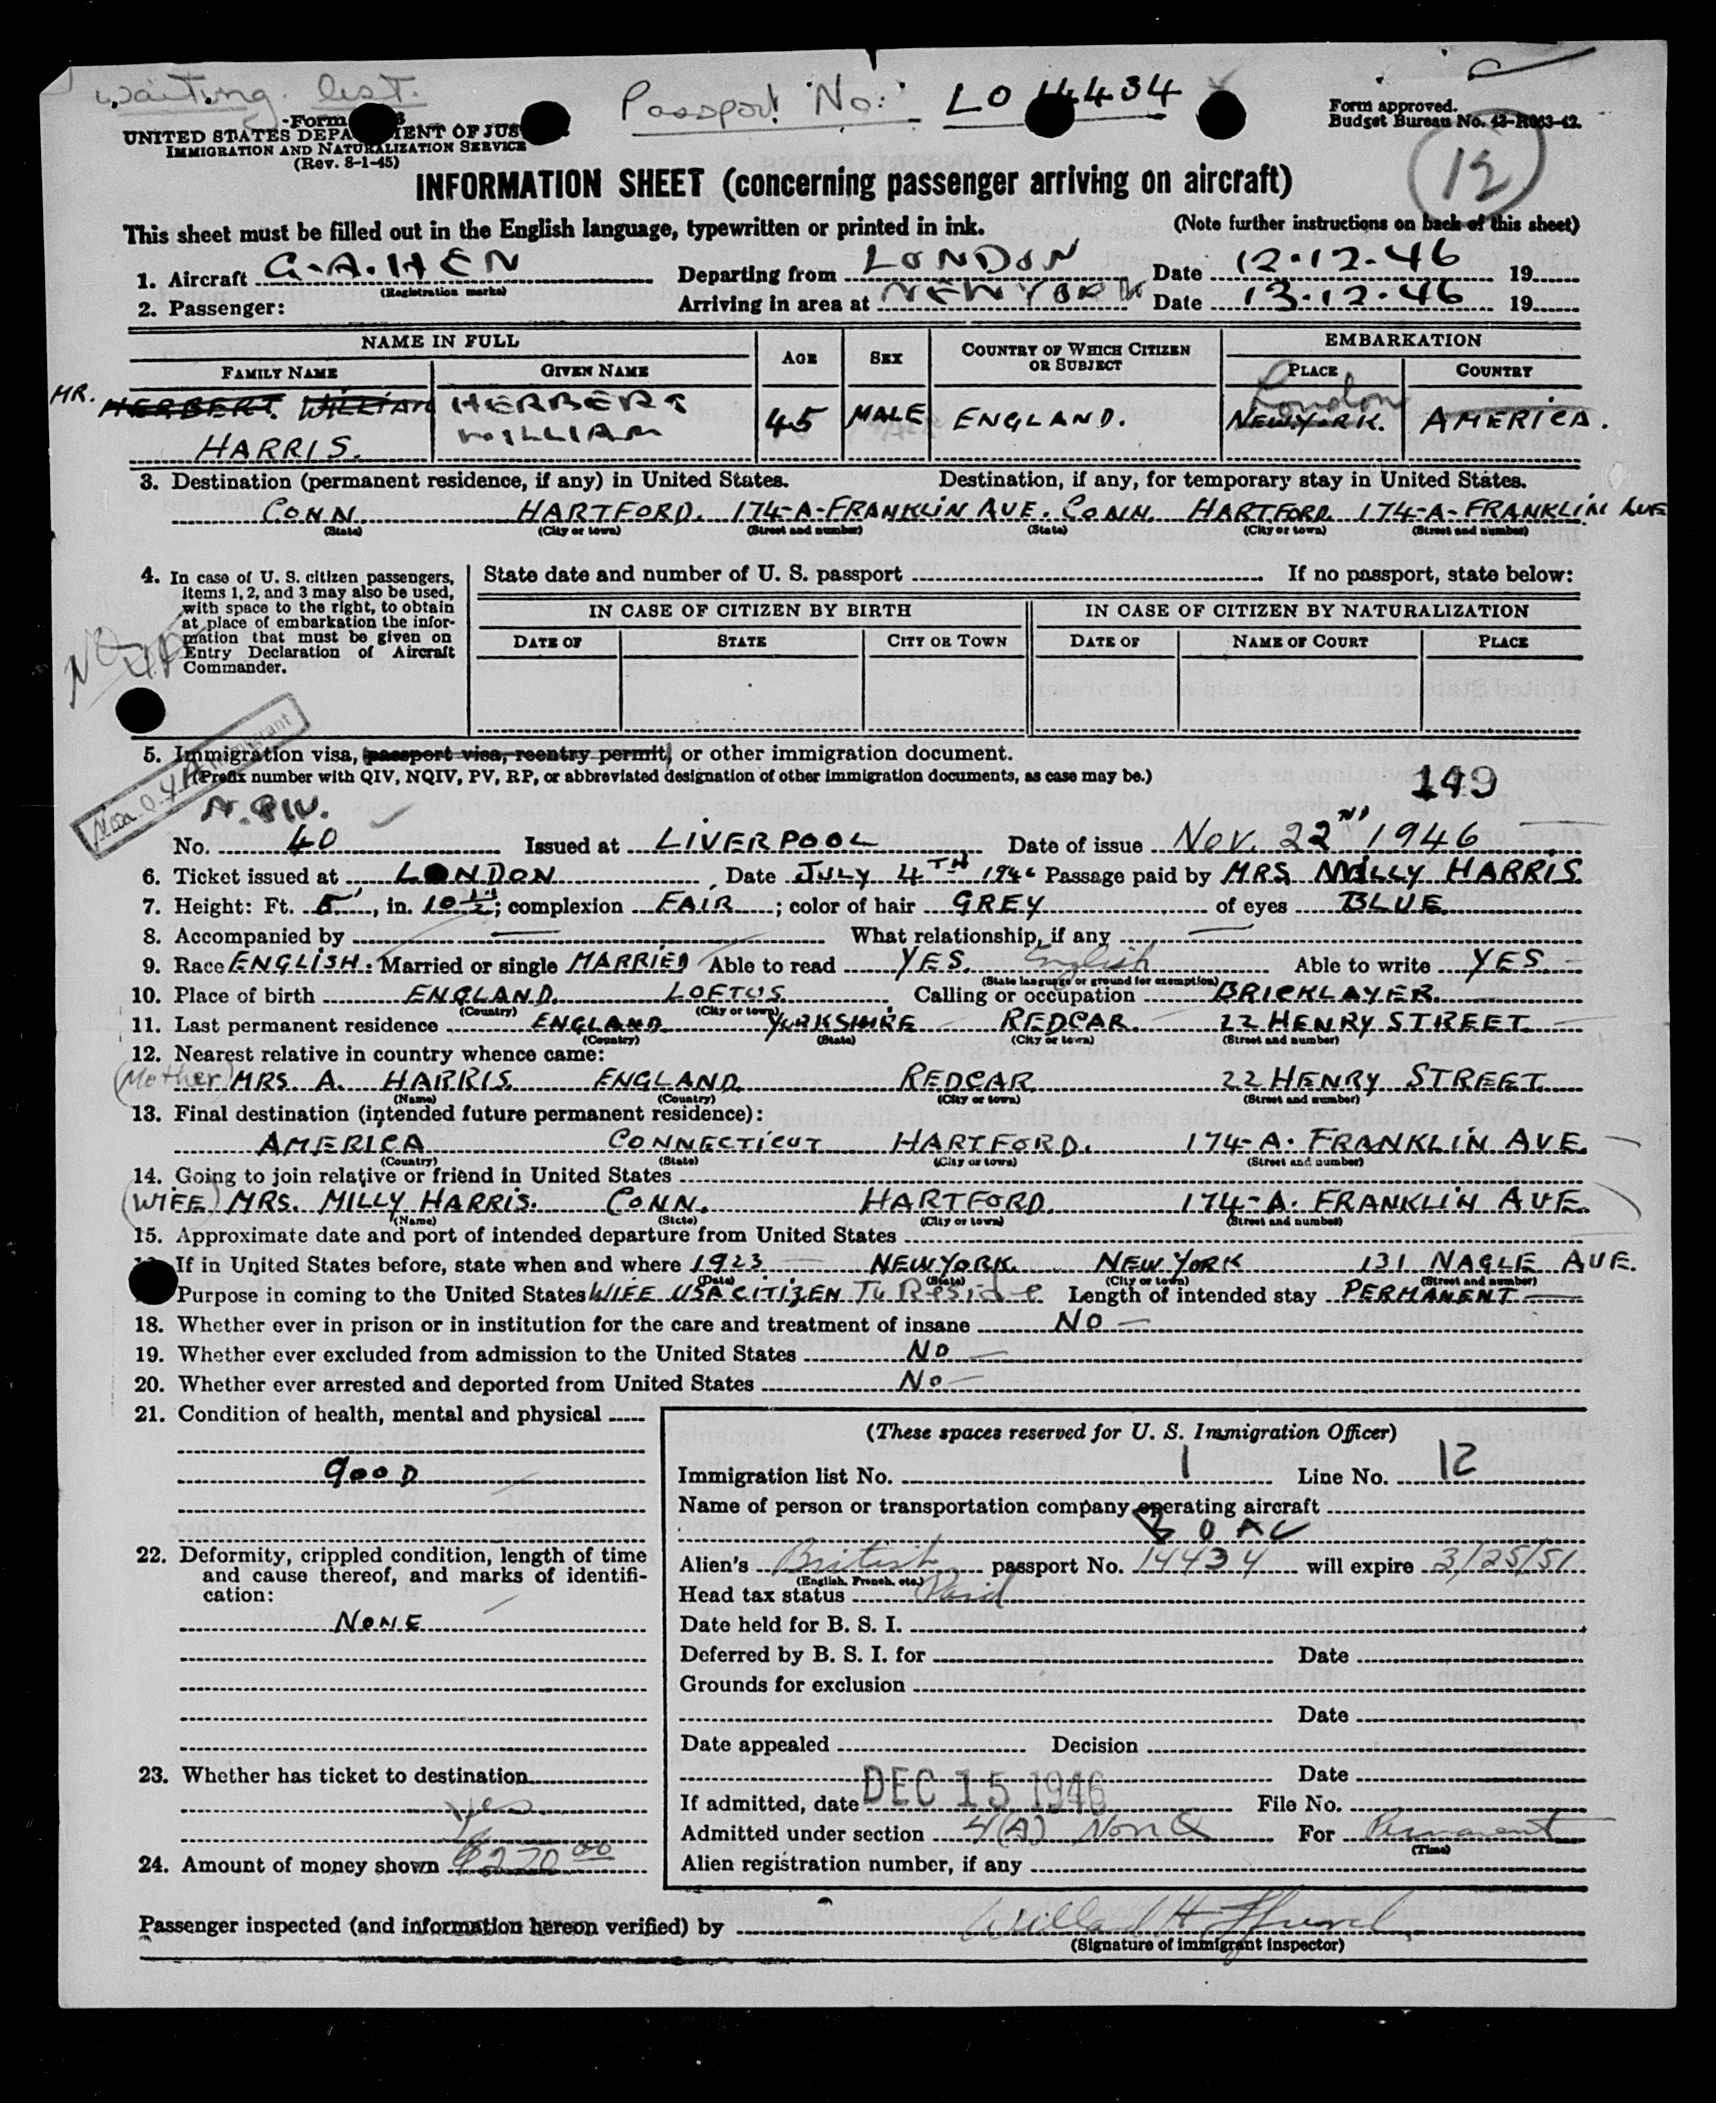 waiting list.
Passport No: LO 14434
Form
UNITED STATES DEPARTMENT OF JUSTICE
IMMIGRATION AND NATURALIZATION SERVICE
(Rev. 8-1-45)
Form approved.
Budget Bureau No. 43-R063-42.
12
INFORMATION SHEET (concerning passenger arriving on aircraft)
This sheet must be filled out in the English language, typewritten or printed in ink. (Note further instructions on back of this sheet)
1. Aircraft G-A.HEN Departing from LONDON Date 12.12.46 19
(Registration marks)
2. Passenger: Arriving in area at NEW YORK Date 13.12.46 19
NAME IN FULL AGE SEX COUNTRY OF WHICH CITIZEN OR SUBJECT EMBARKATION
FAMILY NAME GIVEN NAME PLACE COUNTRY
MR. HERBERT WILLIAM HERBERT London
HARRIS. WILLIAM 45 MALE ENGLAND. NEW YORK. AMERICA.
3. Destination (permanent residence, if any) in United States. Destination, if any, for temporary stay in United States.
CONN HARTFORD. 174-A-FRANKLIN AVE. CONN. HARTFORD 174-A-FRANKLIN AVE
(State) (City or town) (Street and number) (State) (City or town) (Street and number)
4. In case of U. S. citizen passengers, items 1, 2, and 3 may also be used, with space to the right, to obtain at place of embarkation the information that must be given on Entry Declaration of Aircraft Commander.
State date and number of U. S. passport If no passport, state below:
IN CASE OF CITIZEN BY BIRTH IN CASE OF CITIZEN BY NATURALIZATION
DATE OF STATE CITY OR TOWN DATE OF NAME OF COURT PLACE
NQ 4A
Non Q 4A Immigrant
5. Immigration visa, passport visa, reentry permit, or other immigration document.
(Prefix number with QIV, NQIV, PV, RP, or abbreviated designation of other immigration documents, as case may be.)
149
No. 40 Issued at LIVERPOOL Date of issue Nov. 22ND 1946
6. Ticket issued at LONDON Date JULY 4TH 1946 Passage paid by MRS MILLY HARRIS.
7. Height: Ft. 5', in. 10 1/2"; complexion FAIR; color of hair GREY of eyes BLUE
8. Accompanied by — What relationship, if any —
9. Race ENGLISH. Married or single MARRIED Able to read YES. English Able to write YES.
(State language or ground for exemption)
10. Place of birth ENGLAND LOFTUS Calling or occupation BRICKLAYER
(Country) (City or town)
11. Last permanent residence ENGLAND YORKSHIRE REDCAR. 22 HENRY STREET
(Country) (State) (City or town) (Street and number)
12. Nearest relative in country whence came:
(Mother) MRS A. HARRIS ENGLAND REDCAR 22 HENRY STREET
(Name) (Country) (City or town) (Street and number)
13. Final destination (intended future permanent residence):
AMERICA CONNECTICUT HARTFORD. 174-A. FRANKLIN AVE.
(Country) (State) (City or town) (Street and number)
14. Going to join relative or friend in United States
(WIFE) MRS. MILLY HARRIS. CONN. HARTFORD. 174-A. FRANKLIN AVE.
(Name) (State) (City or town) (Street and number)
15. Approximate date and port of intended departure from United States
If in United States before, state when and where 1923 NEW YORK. NEW YORK 131 NAGLE AVE.
(Date) (State) (City or town) (Street and number)
Purpose in coming to the United States WIFE USA CITIZEN To Reside Length of intended stay PERMANENT
18. Whether ever in prison or in institution for the care and treatment of insane NO
19. Whether ever excluded from admission to the United States NO
20. Whether ever arrested and deported from United States NO
21. Condition of health, mental and physical
gooD
22. Deformity, crippled condition, length of time and cause thereof, and marks of identification:
NONE
23. Whether has ticket to destination
yes
24. Amount of money shown $270.00
(These spaces reserved for U. S. Immigration Officer)
Immigration list No. 1 Line No. 12
Name of person or transportation company operating aircraft
BOAC
Alien's British passport No. 14434 will expire 3/25/51
(English, French, etc.)
Head tax status Paid
Date held for B. S. I.
Deferred by B. S. I. for Date
Grounds for exclusion
Date
Date appealed Decision
Date
If admitted, date DEC 15 1946 File No.
Admitted under section 4(A) Non Q For Permanent
(Time)
Alien registration number, if any
Passenger inspected (and information hereon verified) by Willard H
(Signature of immigrant inspector)